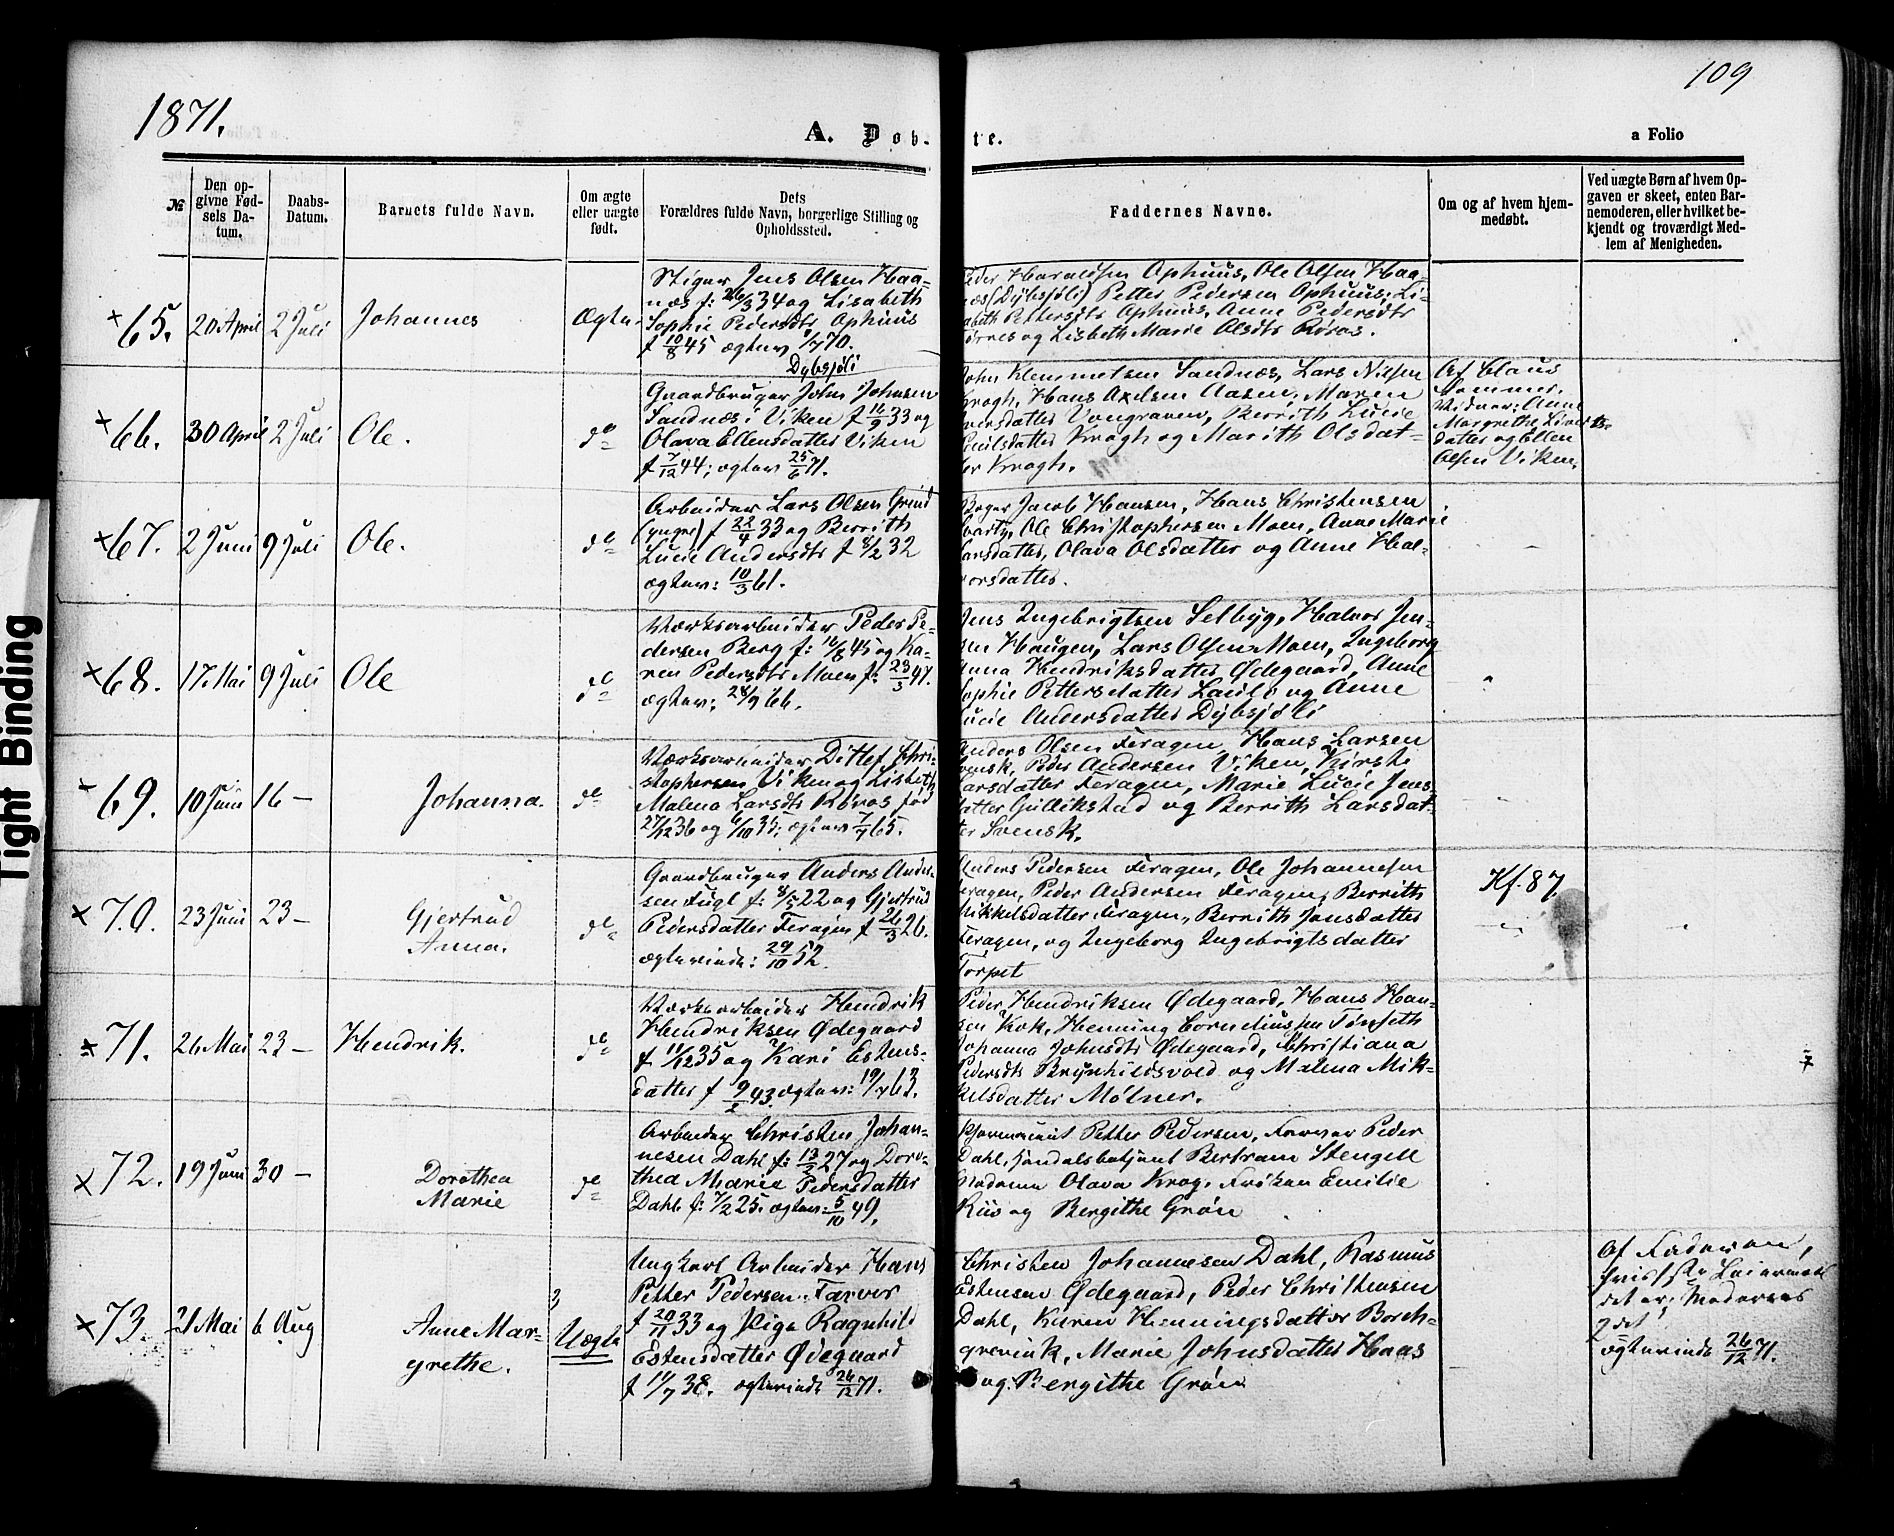 1871.
109
A. Døb-
te.
a Folio
№
Den op-
givne Fød-
sels Da-
tum.
Daabs-
Datum.
Barnets fulde Navn.
Om ægte
eller uægte
født.
Dets
Forældres fulde Navn, borgerlige Stilling og
Opholdssted.
Faddernes Navne.
Om og af hvem hjem-
medøbt.
Ved uægte Børn af hvem Op-
gaven er skeet, enten Bar-
nemoderen, eller hvilket be-
kjendt og troværdigt Med-
lem af Menigheden.
65. 20 April 2 Juli Johannes Ægte
Stiger Jens Olsen Haa-
næs f: 26/3 34 og Lisabeth
Sophie Pedersdtr Ophuus
f 10/8 45 ægtev 9/7 70.
Dybsjöli
Peder Haraldsen Ophuus, Ole Olsen Haa-
næs (Dybsjöli) Petter Pedersen Ophuus, Li-
sabeth Pettersdtr Ophuus, Anne Pedersdtr
og Lisbeth Marie Olsdtr Røros.
66. 30 April 2 Juli Ole. do
Gaardbruger John Johnsen
Sandnæs i Viken f 16/9 33 og
Olava Ellensdatter Viken
f 7/12 44; ægtev 25/6 71.
John Klemmetsen Sandnæs, Lars Nilsen
Krogh, Hans Axelsen Aasen, Maren
Iversdatter Vongraven, Berrith Lucie
Krogh og Marith Olsdat-
ter Krogh.
Af Claus
Sommer.
Vidner: Anne
Margrethe
datter og Ellen
Olsen Viken.
67. 2 Juni 9 Juli Ole. do
Arbeider Lars Olsen Grind
(yngre) f 22/4 33 og Berrith
Lucie Andersdtr f 8/2 32
ægtev: 10/3 61.
Jacob Hansen, Hans Christensen
Ole Christophersen Moen, Anne Marie
Larsdatter, Olava Olsdatter og Anne Hal-
vorsdatter.
68. 17 Mai 9 Juli Ole do
Værksarbeider Peder Pe-
dersen Berg f: 16/8 45 og Ka-
ren Pedersdtr Moen f: 23/3 47.
ægtev: 28/9 66.
Jens Ingebrigtsen Selbyg, Halvor Jen-
sen Haugen, Lars Olsen Moen, Ingeborg
Anna Hendriksdatter Ødegaard, Anne
Sophie Pettersdatter og Anne
Lucie Andersdatter Dybsjöli
69. 10 Juni 16 – Johanna. do
Værksarbeider Ditlef Chri-
stophersen Viken og Lisbeth
Malena Larsdtr Røros fød
27/12 36 og 6/10 35; ægtev 7/7 65.
Anders Olsen Feragen, Hans Larsen
Svensk, Peder Andersen Viken, Kirsti
Larsdatter Feragen, Marie Lucie Jens-
datter Gullikstad og Berrith Larsdat-
ter Svensk.
70. 23 Juni 23 – Gjertrud
Anna. do
Gaardbruger Anders Ander-
sen Fugl f: 8/5 22 og Gjertrud
Pedersdatter Feragen f 26/3 26.
ægteviede: 29/10 52.
Anders Pedersen Feragen, Ole Johannesen
Feragen, Peder Andersen Feragen, Berrith
Mikkelsdatter Feragen, Berrith Jonsdatter
Feragen, og Ingeborg Ingebrigtsdatter
Torpet
Kf. 87
71. 26 Mai 23 – Hendrik. do
Værksarbeider Hendrik
Hendriksen Ødegaard
f 11/12 35 og Kari Estens-
datter f 9/2 43. ægtev: 19/7 63.
Peder Hendriksen Ødegaard, Hans Han-
sen Kok, Henning Corneliussen Tønseth
Johanna Johnsdtr Ødegaard, Christiana
Pedersdtr Brynhildsvold og Malena Mik-
kelsdatter Mølner.
72. 19 Juni 30 – Dorothea
Marie do
Arbeider Christen Johan-
nesen Dahl f: 13/2 27 og Doro-
thea Marie Pedersdatter
Dahl f: 7/2 25. ægtev: 5/10 49.
Petter Pedersen, Farver Peder
Dahl, Handelsbetjent Bertram Stengell
Madame Olava Krog, Frøken Emilie
Riis og Bergithe Grøn
73. 21 Mai 6 Aug Anne Mar-
grethe. 3
Uægte
Ungkarl Arbeider Hans
Petter Pedersen Farver
f 20/11 33 og Pige Ragnhild
Estensdatter Ødegaard
f 19/7 38. ægteviede 26/12 71.
Christen Johannesen Dahl, Rasmus
Estensen Ødegaard, Peder Christensen
Dahl, Karen Henningsdatter Borch-
grevink, Marie Johnsdatter Haas
og Bergithe Grøn
Af Faderen,
hvis 1ste Leiermaal
det er; Moderens
2det
ægteviede 26/12 71.
Tight Binding